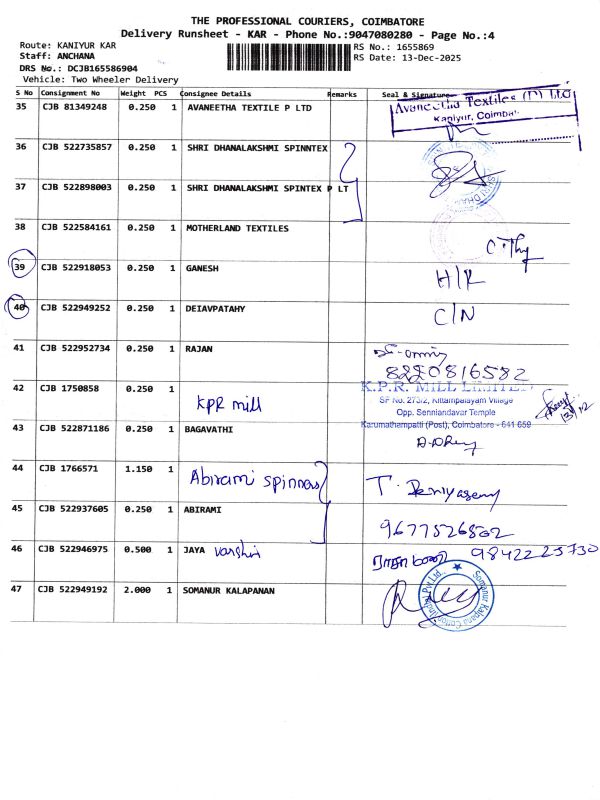 THE PROFESSIONAL COURIERS, COIMBATORE
Delivery Runsheet - KAR - Phone No.:9047080280 - Page No.:4
Route: KANIYUR KAR
RS No.: 1655869
Staff: ANCHANA
RS Date: 13-Dec-2025
DRS No.: DCJB165586904
Vehicle: Two Wheeler Delivery
S No Consignment No Weight PCS Consignee Details Remarks Seal & Signature
35 CJB 81349248 0.250 1 AVANEETHA TEXTILE P LTD
Avaneetha Textiles (P) LTD
Kaniyur, Coimbat
36 CJB 522735857 0.250 1 SHRI DHANALAKSHMI SPINNTEX
37 CJB 522898003 0.250 1 SHRI DHANALAKSHMI SPINTEX P LT
38 CJB 522584161 0.250 1 MOTHERLAND TEXTILES
39 CJB 522918053 0.250 1 GANESH H/R
40 CJB 522949252 0.250 1 DEIAVPATAHY C/N
41 CJB 522952734 0.250 1 RAJAN
8220816582
42 CJB 1750858 0.250 1 KPR mill
K.P.R. MILL LIMITED
SF No. 273/2, Kittampalayam Village
Opp. Senniandavar Temple
Karumathampatti (Post), Coimbatore - 641 659
13/12
43 CJB 522871186 0.250 1 BAGAVATHI
44 CJB 1766571 1.150 1 Abirami spinners
45 CJB 522937605 0.250 1 ABIRAMI
9677526502
46 CJB 522946975 0.500 1 JAYA varshini 9842225730
47 CJB 522949192 2.000 1 SOMANUR KALAPANAN
Somanur Kalpana Cotton India Pvt Ltd.,